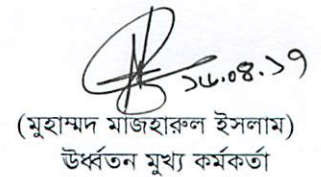 ১৮.০৪.১৭
(মুহাম্মদ মাজহারুল ইসলাম)
উর্ধ্বতন মুখ্য কর্মকর্তা